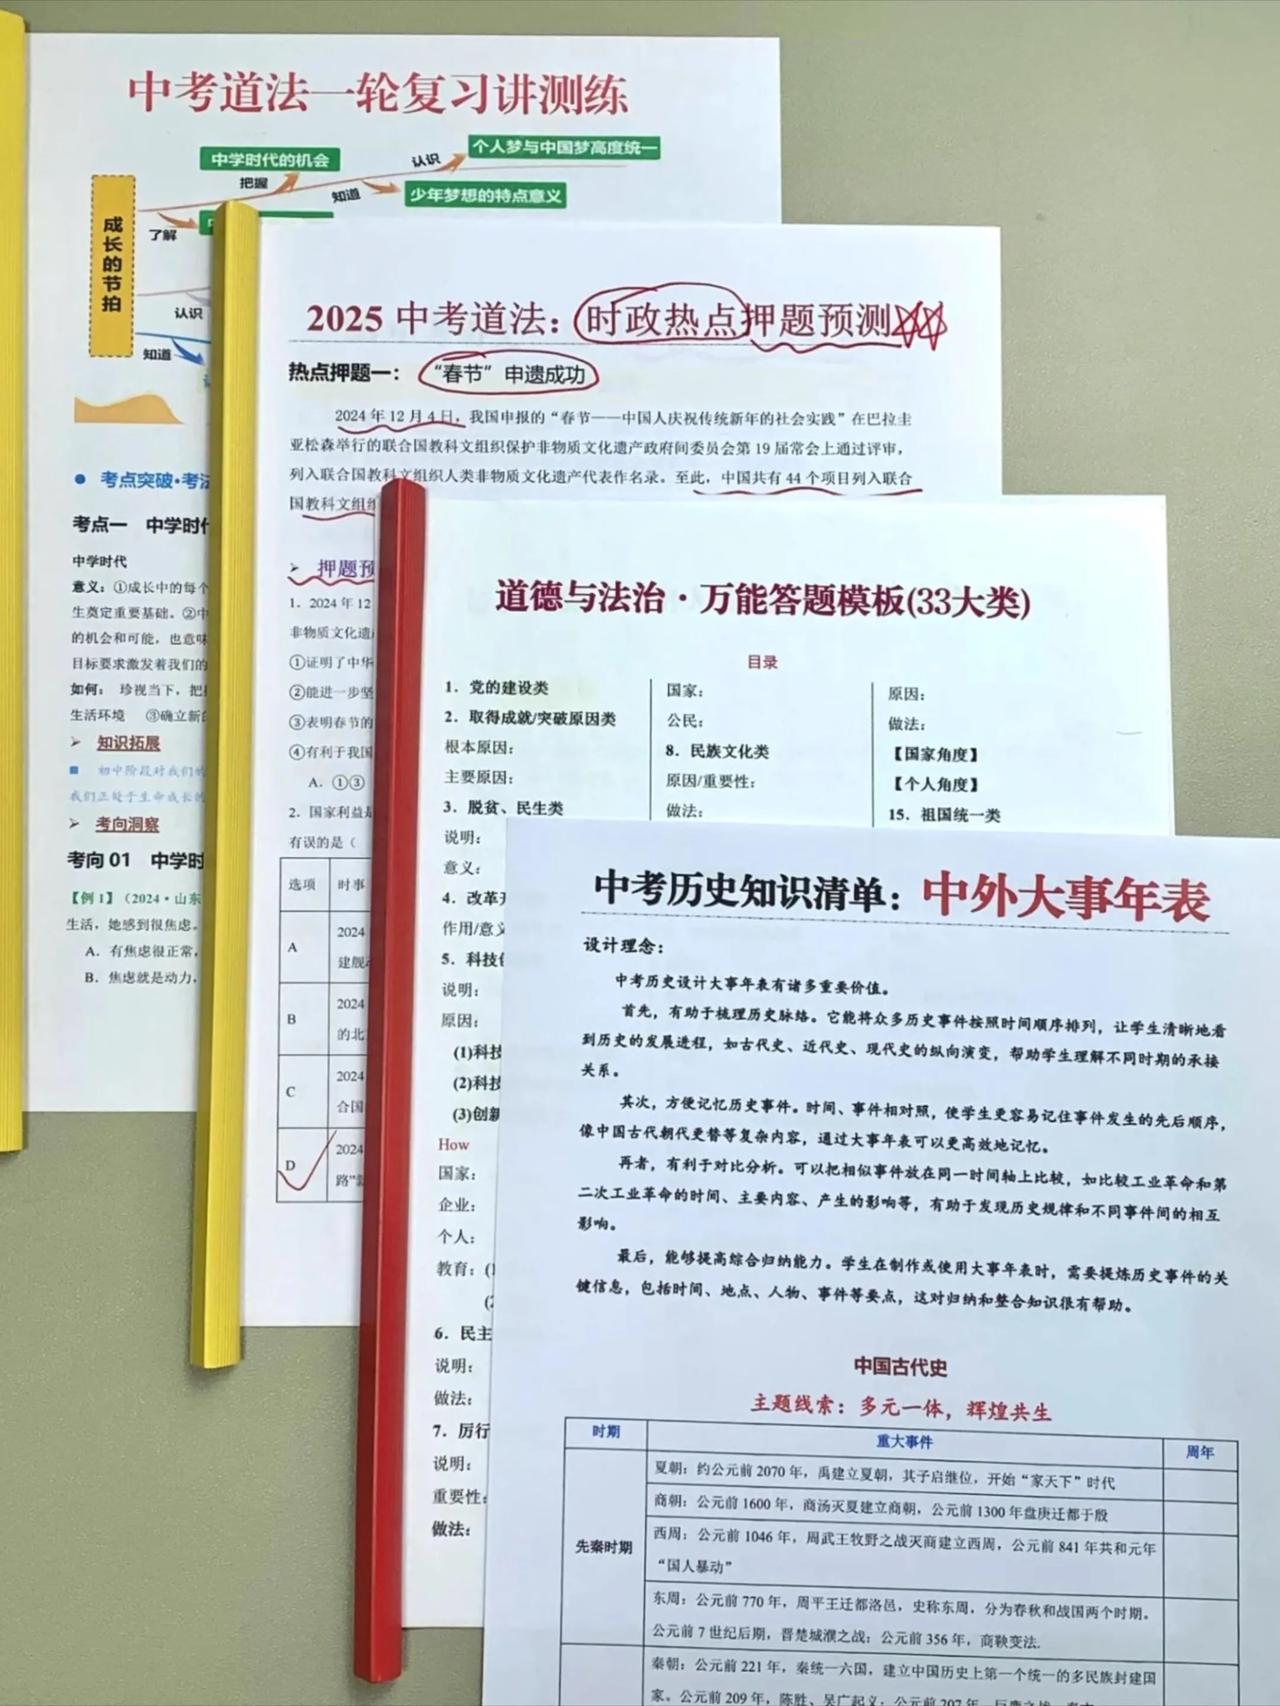 中考道法一轮复习讲测练
中学时代的机会
认识
个人梦与中国梦高度统一
把握
知道
少年梦想的特点意义
成长的节拍
了解
认识
知道
考点突破·考法
考点一 中学时代
中学时代
意义：①成长中的每个
生奠定重要基础。②中
的机会和可能，也意味
目标要求激发着我们的
如何： 珍视当下，把握
生活环境 ③确立新的
知识拓展
初中阶段对我们的
我们正处于生命成长的
考向洞察
考向 01 中学时
【例 1】（2024·山东
生活，她感到很焦虑。
A．有焦虑很正常，
B．焦虑就是动力，
2025 中考道法：时政热点押题预测
热点押题一： “春节”申遗成功
2024 年 12 月 4 日，我国申报的“春节——中国人庆祝传统新年的社会实践”在巴拉圭
亚松森举行的联合国教科文组织保护非物质文化遗产政府间委员会第 19 届常会上通过评审，
列入联合国教科文组织人类非物质文化遗产代表作名录。至此，中国共有 44 个项目列入联合
国教科文组织
押题预
1．2024 年 12
非物质文化遗产
①证明了中华
②能进一步坚
③表明春节的
④有利于我国
A．①③
2．国家利益是
有误的是（
选项 时事
A 2024
建舰
B 2024
的北
C 2024
合国
D 2024
路”
道德与法治·万能答题模板(33大类)
目录
1．党的建设类
2．取得成就/突破原因类
根本原因：
主要原因：
3．脱贫、民生类
说明：
意义：
4．改革开
作用/意义
5．科技创
说明：
原因：
(1)科技
(2)科技
(3)创新
How
国家：
企业：
个人：
教育：(1
(2
6．民主
说明：
做法：
7．厉行
说明：
重要性：
做法：
国家：
公民：
8．民族文化类
原因/重要性：
做法：
原因：
做法：
【国家角度】
【个人角度】
15．祖国统一类
中考历史知识清单：中外大事年表
设计理念：
中考历史设计大事年表有诸多重要价值。
首先，有助于梳理历史脉络。它能将众多历史事件按照时间顺序排列，让学生清晰地看
到历史的发展进程，如古代史、近代史、现代史的纵向演变，帮助学生理解不同时期的承接
关系。
其次，方便记忆历史事件。时间、事件相对照，使学生更容易记住事件发生的先后顺序，
像中国古代朝代更替等复杂内容，通过大事年表可以更高效地记忆。
再者，有利于对比分析。可以把相似事件放在同一时间轴上比较，如比较工业革命和第
二次工业革命的时间、主要内容、产生的影响等，有助于发现历史规律和不同事件间的相互
影响。
最后，能够提高综合归纳能力。学生在制作或使用大事年表时，需要提炼历史事件的关
键信息，包括时间、地点、人物、事件等要点，这对归纳和整合知识很有帮助。
中国古代史
主题线索：多元一体，辉煌共生
时期 重大事件 周年
先秦时期
夏朝：约公元前 2070 年，禹建立夏朝，其子启继位，开始“家天下”时代
商朝：公元前 1600 年，商汤灭夏建立商朝，公元前 1300 年盘庚迁都于殷
西周：公元前 1046 年，周武王牧野之战灭商建立西周，公元前 841 年共和元年
“国人暴动”
东周：公元前 770 年，周平王迁都洛邑，史称东周，分为春秋和战国两个时期。
公元前 7 世纪后期，晋楚城濮之战；公元前 356 年，商鞅变法.
秦朝：公元前 221 年，秦统一六国，建立中国历史上第一个统一的多民族封建国
家。公元前 209 年，陈胜、吴广起义；公元前 207 年，巨鹿之战，秦亡